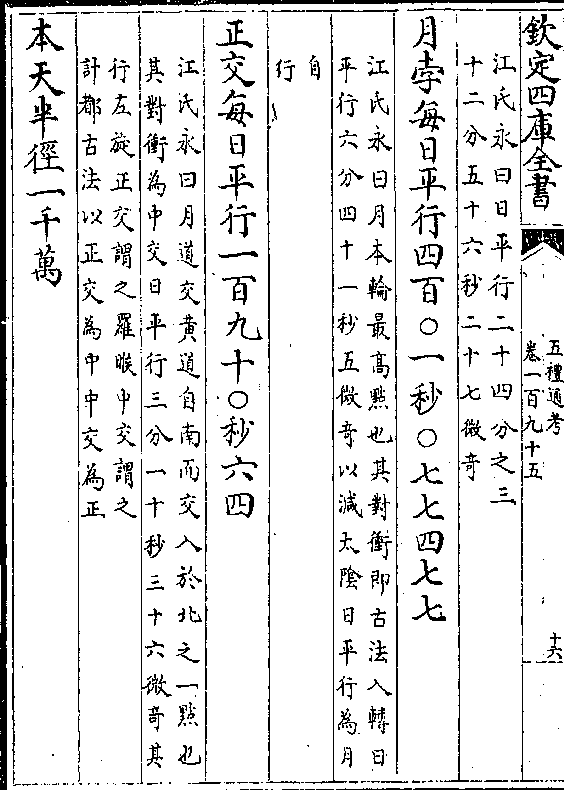 欽定四庫全書
五禮通考
卷一百九十五
十六
江氏永曰日平行二十四分之三
十二分五十六秒二十七微竒
月孛每日平行四百〇一秒〇七七四七七
江氏永曰月本輪最高㸃也其對衝即古法入轉日
平行六分四十一秒五微竒以減太陰日平行為月
自
行
正交每日平行一百九十〇秒六四
江氏永曰月道交黄道自南而交入於北之一㸃也
其對衝為中交日平行三分一十秒三十六微竒其
行左旋正交謂之羅㬋中交謂之
計都古法以正交為中中交為正
本天半徑一千萬